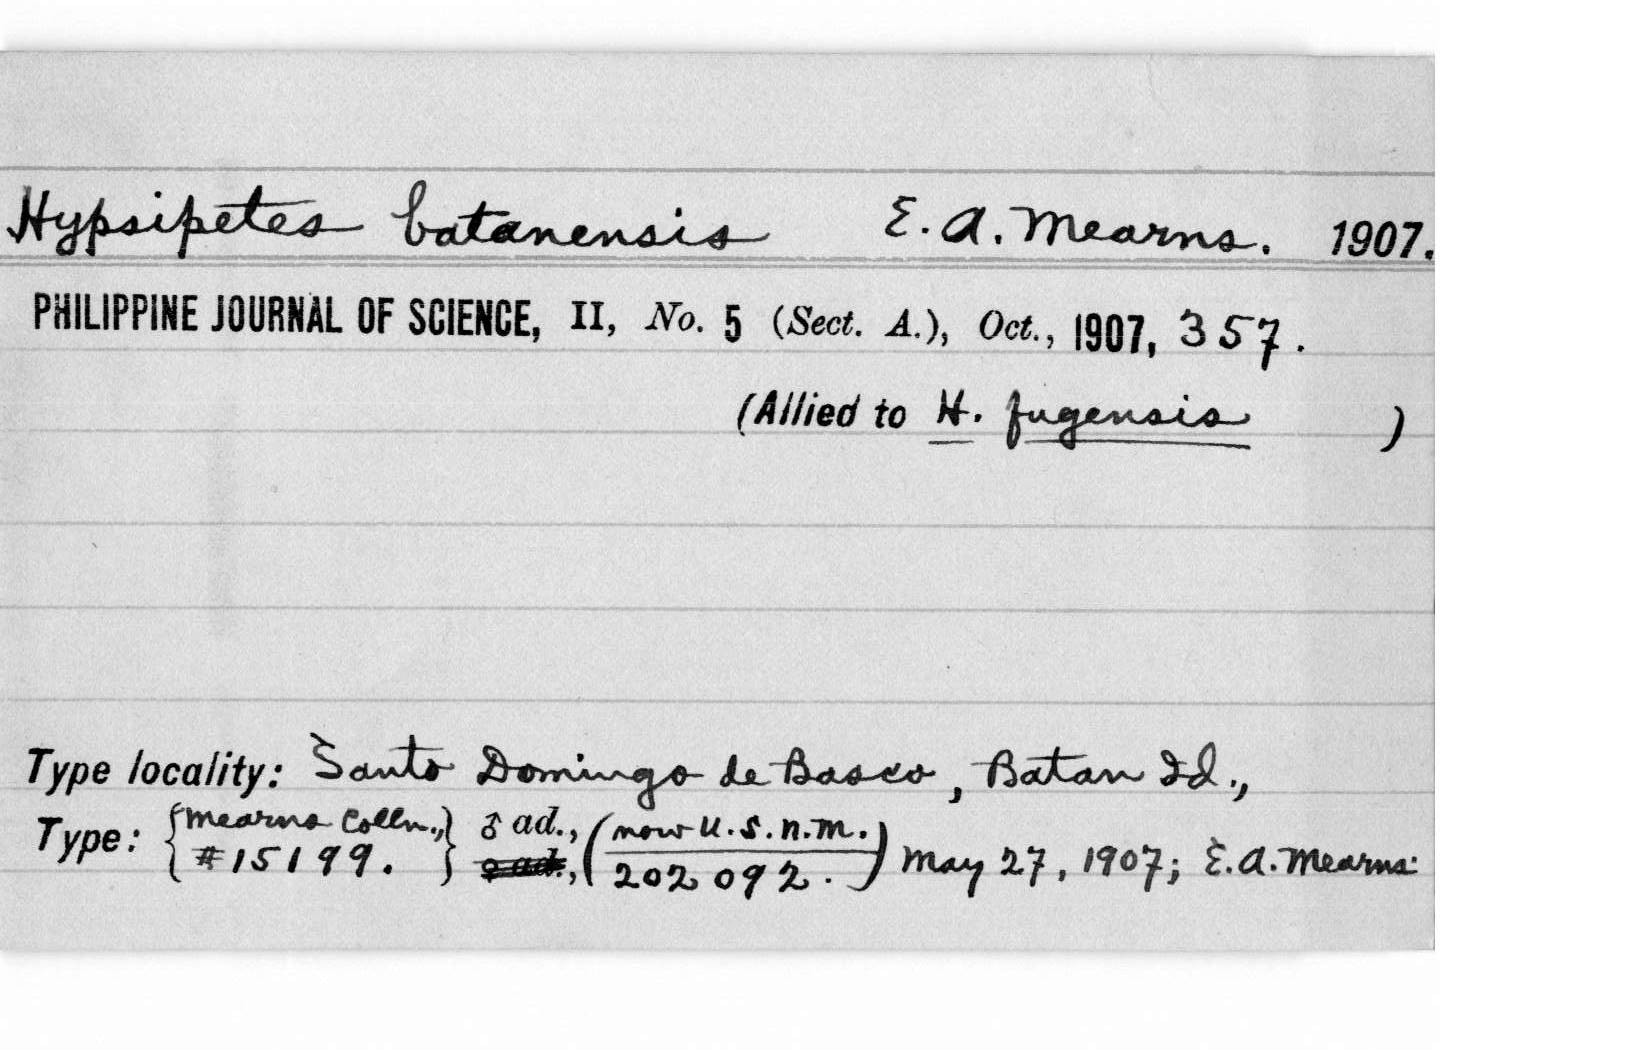 Hypsipetes batanensis E. A. Mearns. 1907.
PHILIPPINE JOURNAL OF SCIENCE, II, No. 5 (Sect. A.), Oct., 1907, 357.
(Allied to H. fugensis )
Type locality: Santo Domingo de Basco, Batan Id.,
Type: {Mearns Colln., #15199.} ♂ ad., ♀ ad., (now U.S.N.M. 202092.) May 27, 1907; E.A. Mearns.